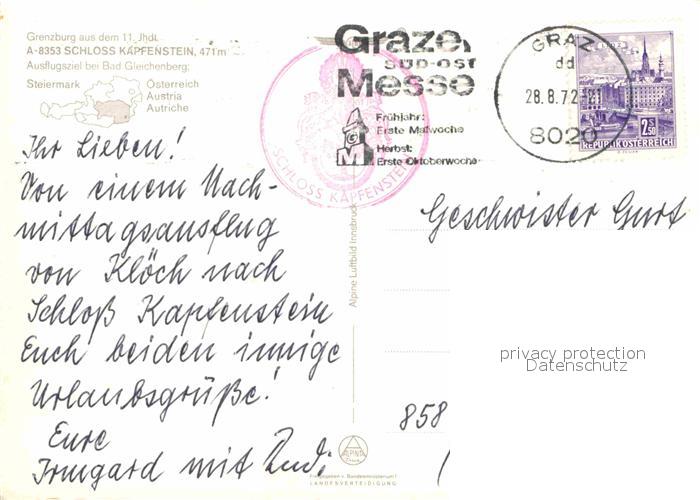 Grenzburg aus dem 11. Jhdt.
A-8353 SCHLOSS KAPFENSTEIN, 471 m
Ausflugsziel bei Bad Gleichenberg;
Steiermark
Österreich
Austria
Autriche
Ihr Lieben!
Von einem Nach-
mittagsausflug
von Klöch nach
Schloß Kapfenstein
Euch beiden innige
Urlaubsgrüße!
Eure
Irmgard mit Rudi
SCHLOSS KAPFENSTEIN
Grazer
SÜD-OST
Messe
Frühjahr:
Erste Maiwoche
Herbst:
Erste Oktoberwoche
G
M
GRAZ
dd
28.8.72
8020
2.50
REPUBLIK ÖSTERREICH
Geschwister Gurt
Alpine Luftbild Innsbruck
privacy protection
Datenschutz
858
ALPINE
Freigegeben v. Bundesministerium f.
LANDESVERTEIDIGUNG